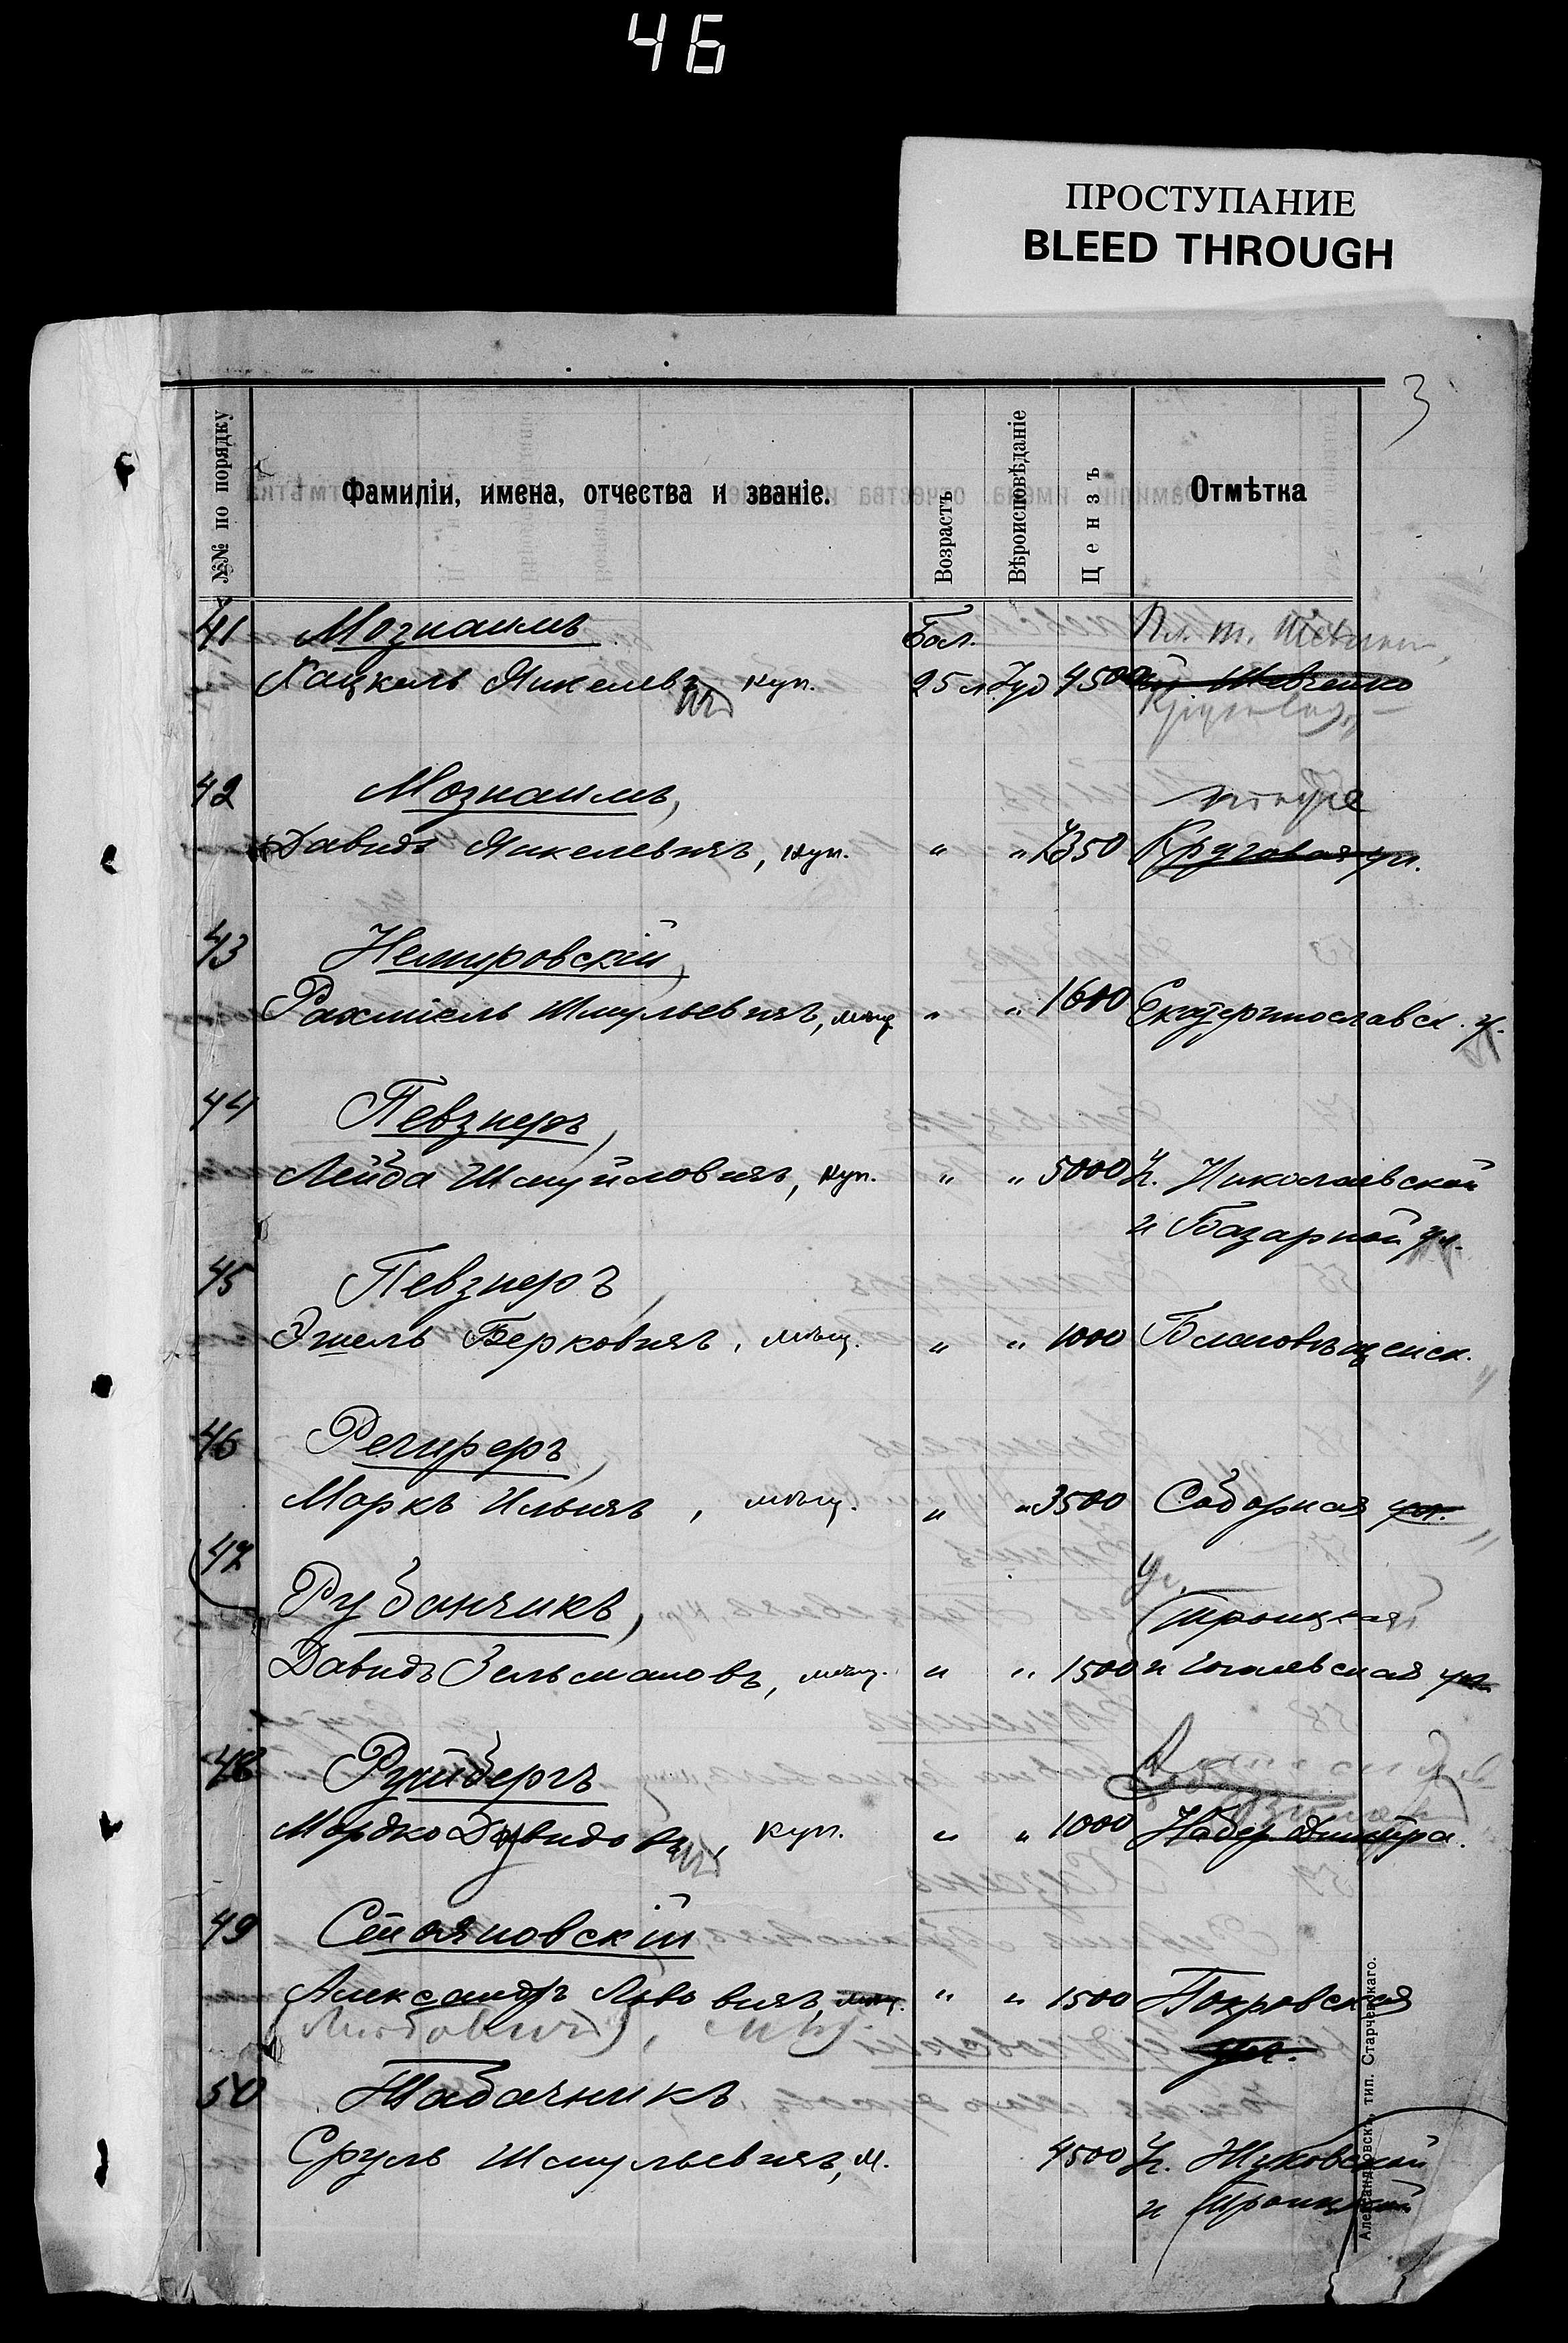 46
ПРОСТУПАНИЕ
BLEED THROUGH
3
№№ по порядку
Фамиліи, имена, отчества и званіе.
Возрастъ
Вѣроисповѣданіе
Цензъ
Отмѣтка
41 Мознаимъ Бол.
Хацкель Янкелевъ куп. 25 л. Іуд 4500
42 Мознаимъ,
Давидъ Янкелевичъ, куп. " " Круговая ул.
43 Немировскій,
Рахміель Шмульевичъ, мѣщ " " 1600 Екатеринославск. у.
44 Певзнеръ,
Лейба Шмуйловичъ, куп. " " 5000 У. Николаевской
и Базарной ул.
45 Певзнеръ,
Эшель Берковичъ, мѣщ. " " 1000 Благовѣщенск.
46 Региреръ,
Маркъ Ильичъ, мѣщ. " " 3500 Соборная ул.
47 Рубанчикъ,
Уг. Троицкая
Давидъ Зельмановъ, мѣщ. " " 1500 и Гоголевская ул.
48
Мордко Давидовъ, куп. " " 1000 Набер Днѣпра.
49 Стояновскій
Александръ Львовичъ, мѣщ. " " 1500 Покровская
ул.
50 Табачникъ
Сруль Шмульевичъ, м. 4500 У. Жуковской
и Троицкой
Александровскъ, тип. Старчевскаго.